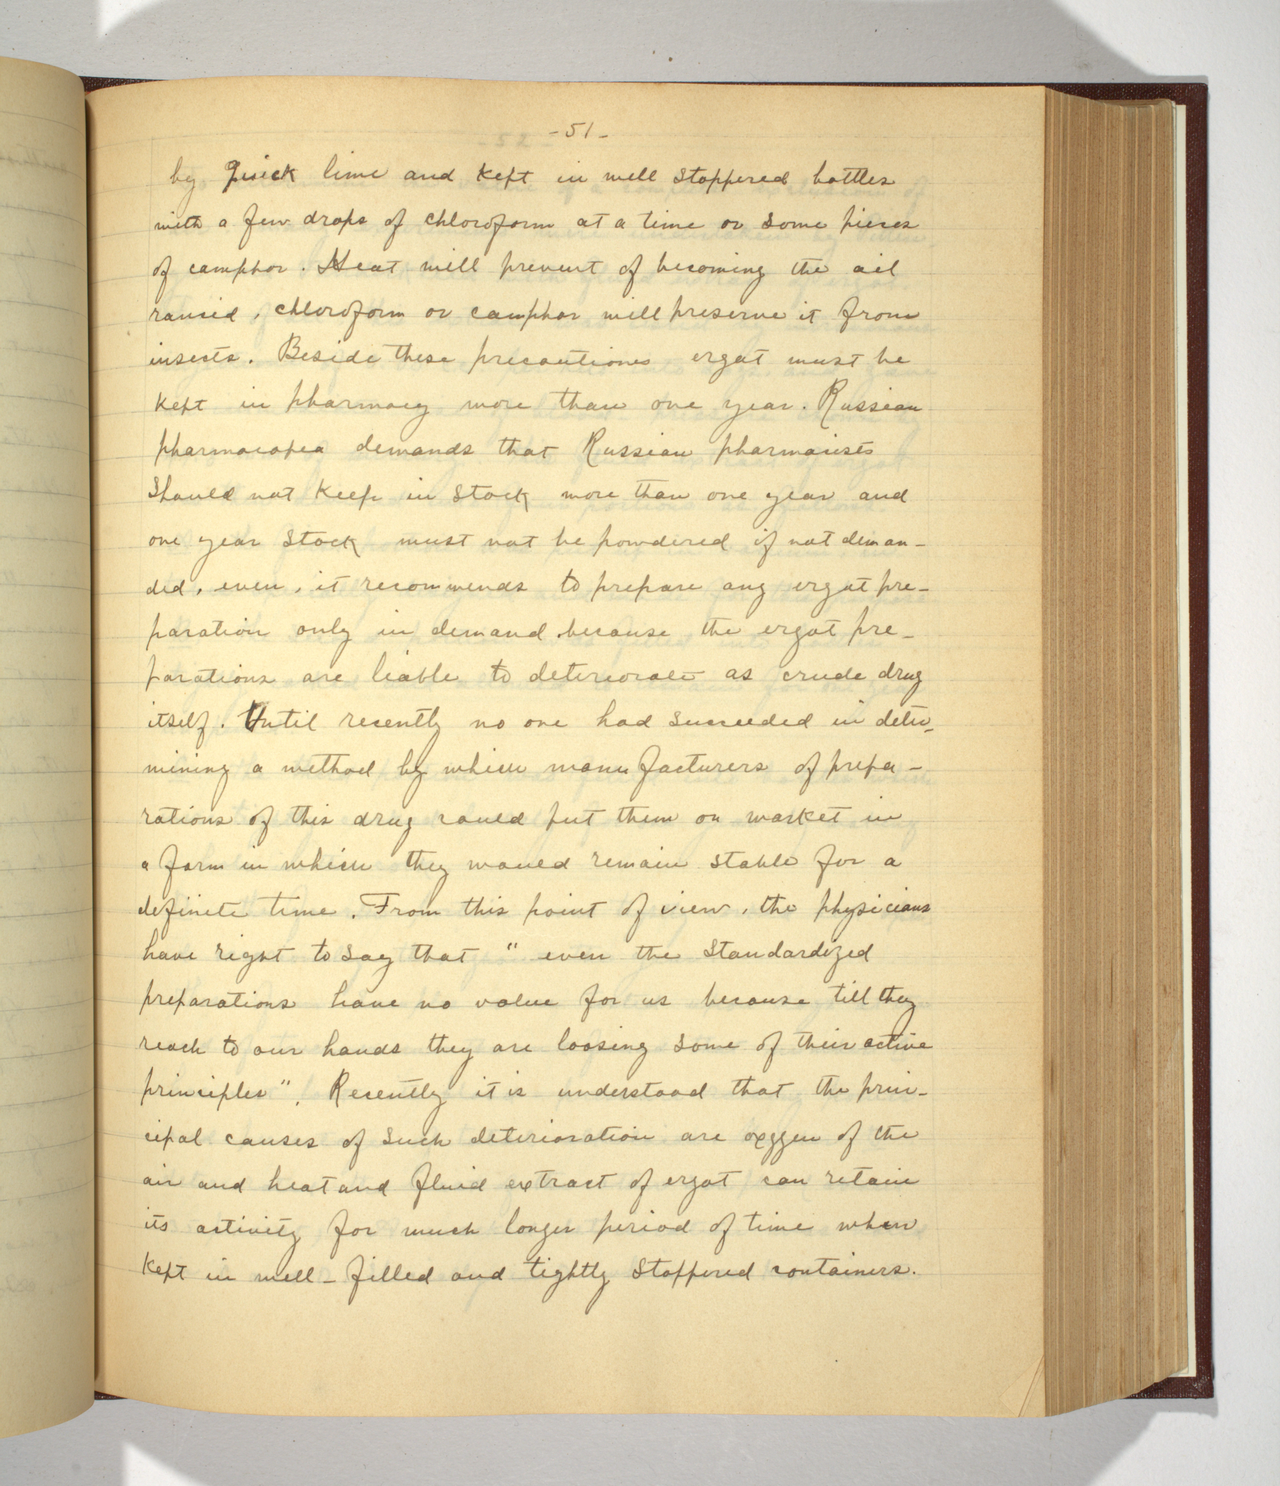 -51-
by Quick lime and kept in well stoppered bottles
with a few drops of chloroform at a time or some pieces
of camphor. Heat will prevent of becoming the oil
rancid, chloroform or camphor will preserve it from
insects. Beside these precautiones ergot must be
kept in pharmacy more than one year. Russian
pharmacopea demands that Russian pharmacists
should not keep in stock more than one year and
one year stock must not be powdered if not deman-
ded, even, it recommends to prepare any ergot pre-
paration only in demand because the ergot pre-
parations are liable to deteriorate as crude drug
itself. Until recently no one had succeeded in deter-
mining a method by which manufacturers of prepa-
rations of this drug could put them on market in
a form in which they would remain stable for a
definite time. From this point of view, the physicians
have right to say that "even the standardized
preparations have no value for us because till they
reach to our hands they are loosing some of their active
principles". Recently it is understood that the prin-
cipal causes of such deterioration are oxygen of the
air and heat and fluid extract of ergot can retain
its activity for much longer period of time when
kept in well-filled and tightly stoppered containers.